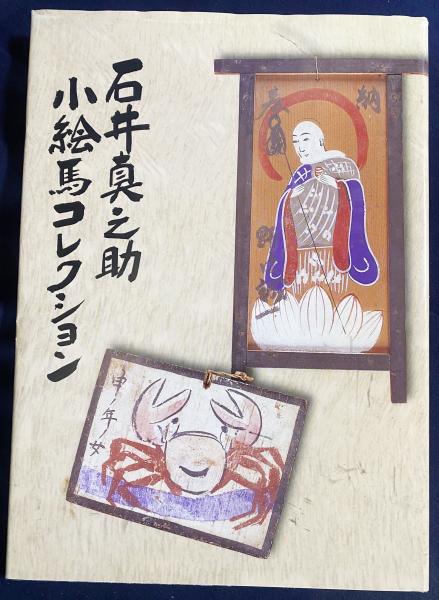 石井真之助
小絵馬コレクション
納
申ノ年女